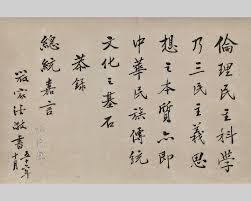 倫理民主科學
乃三民主義思
想之本質亦即
中華民族傳統
文化之基石
恭錄
總統嘉言
嚴家淦敬書
五十一年
十月